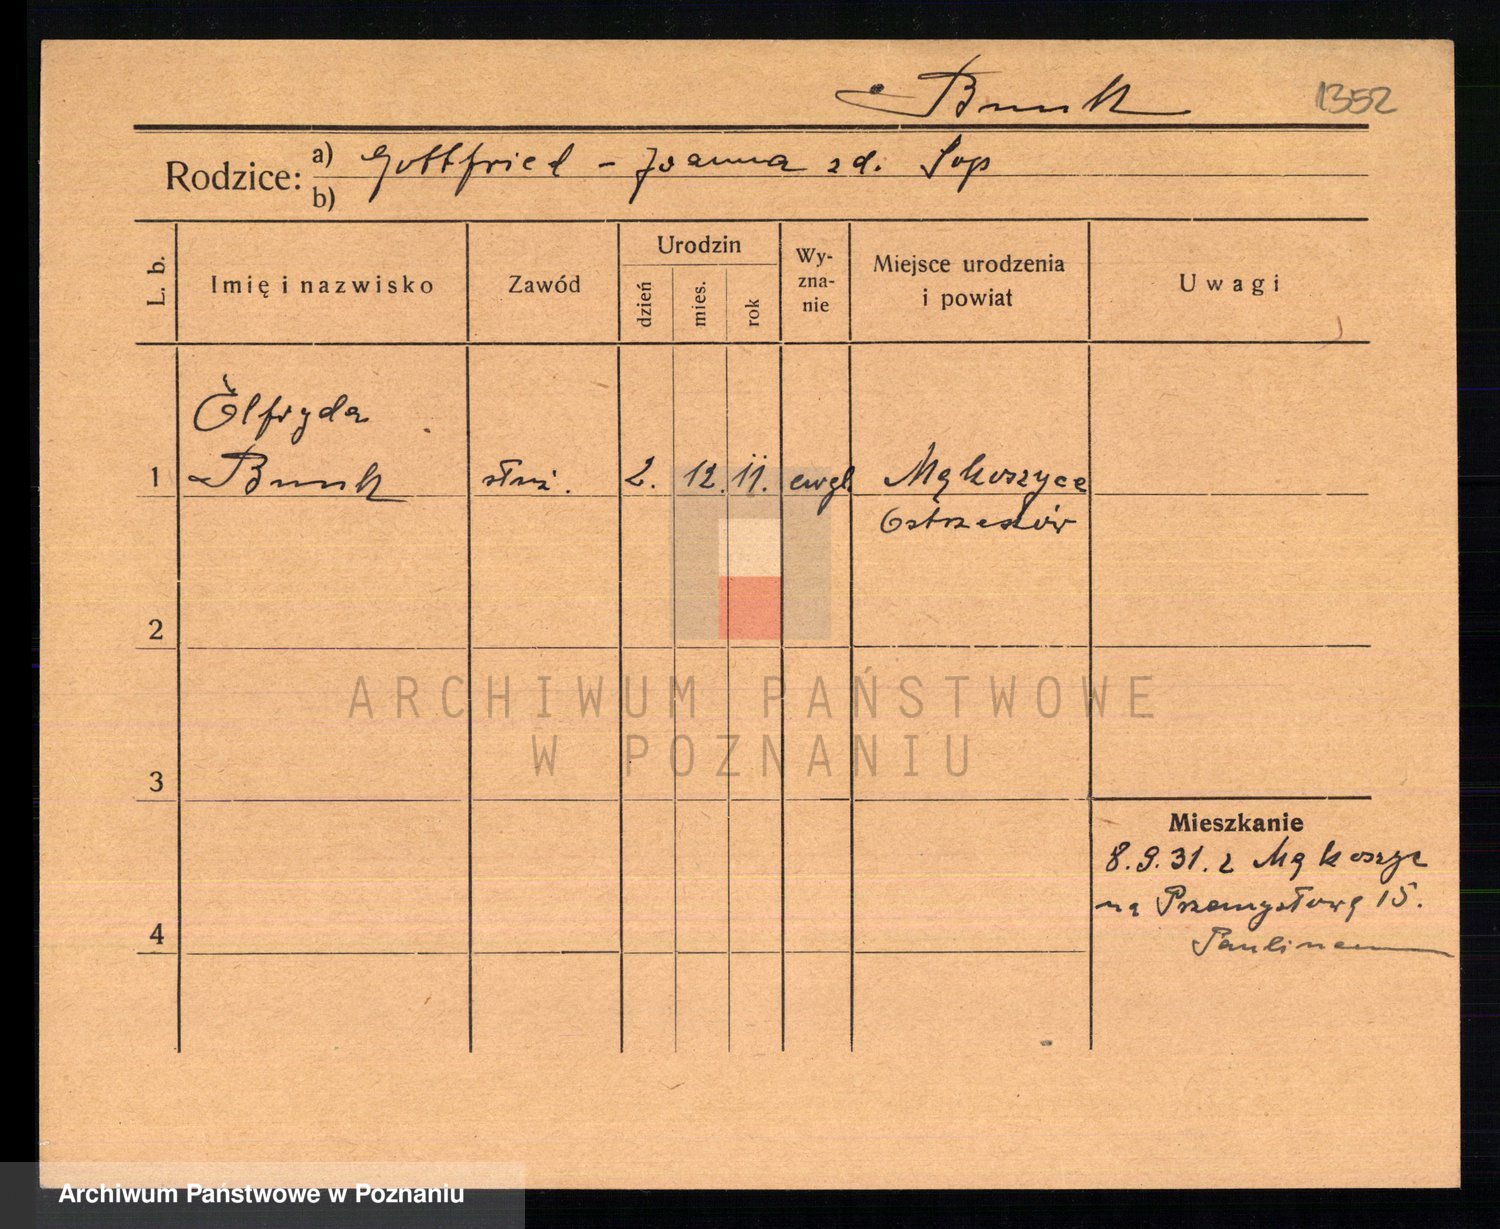 Bunk
1352
Rodzice: a) Gottfried - Joanna zd. Sop
b)
L. b.
Imię i nazwisko
Zawód
Urodzin
dzień
mies.
rok
Wy-
zna-
nie
Miejsce urodzenia
i powiat
Uwagi
Elfryda
1 Bunk służ. 2. 12. 11. ewgl Mąkoszyce
Ostrzeszów
2
ARCHIWUM PAŃSTWOWE
W POZNANIU
3
Mieszkanie
8.9.31. z Mąkoszyc
na Przemysłową 15.
4
Archiwum Państwowe w Poznaniu